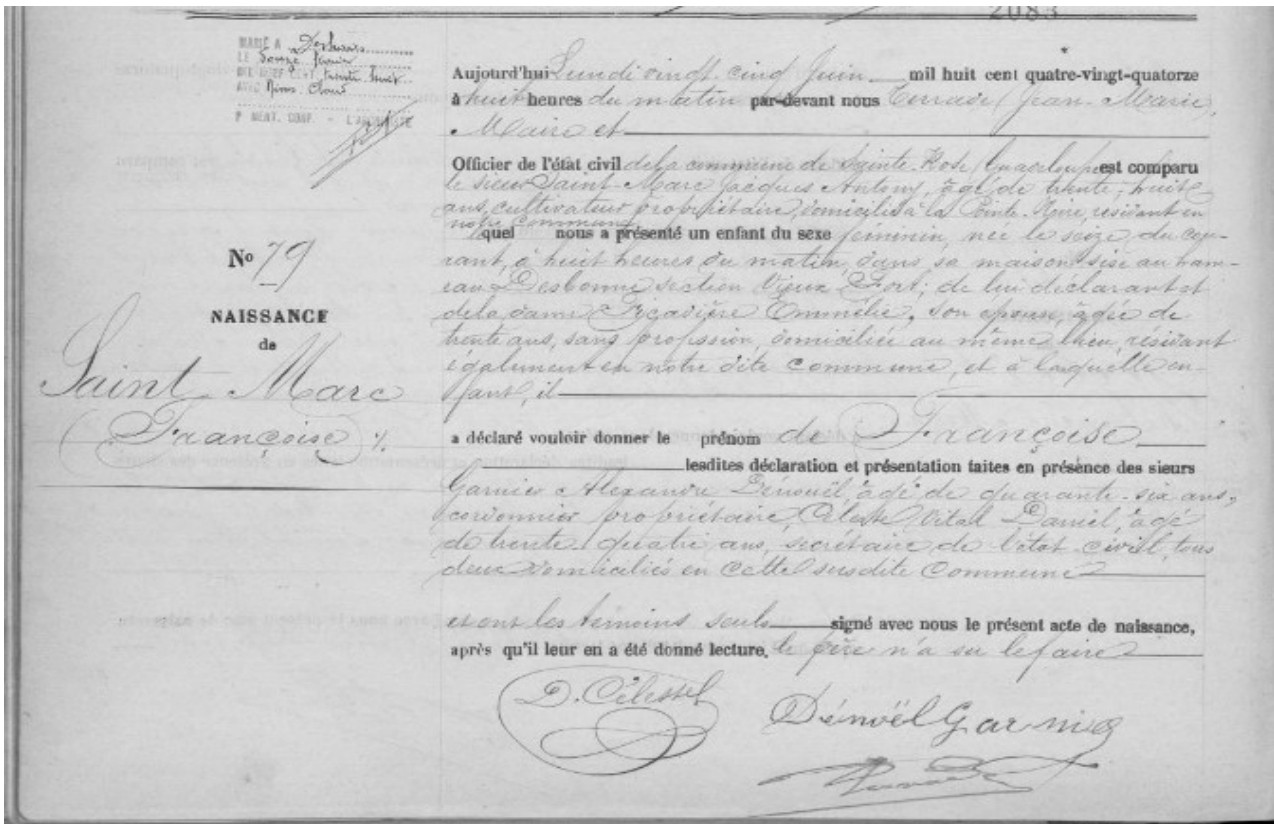 2083
MARIÉ A Deshaies
LE Douze Janvier
MIL NEUF CENT trente huit
AVEC Nims Cloud
Pʳ MENT. CONF. - L'ARCHIVISTE
Aujourd'hui Lundi vingt cinq Juin mil huit cent quatre-vingt-quatorze
à huit heures du matin par-devant nous Terrade (Jean-Marie)
Maire et
Officier de l'état civil de la commune de Sainte-Rose (Guadeloupe) est comparu
le sieur Saint-Marc Jacques Antony, âgé de trente-huit
ans, cultivateur propriétaire, domicilié à la Pointe-Noire, résidant en
notre commune
quel nous a présenté un enfant du sexe féminin, née le seize du cou-
rant, à huit heures du matin, dans sa maison sise au ham-
eau Desbonne section Vieux-Fort; de lui déclarant et
de la dame Emmélie, son épouse, âgée de
trente ans, sans profession, domiciliée au même lieu, résidant
également en notre dite commune, et à laquelle en-
fant, il
No 79
NAISSANCE
de
Saint-Marc
(Françoise) %
a déclaré vouloir donner le prénom de Françoise
lesdites déclaration et présentation faites en présence des sieurs
Garnier Alexandre Dénoël, âgé de quarante-six ans,
cordonnier propriétaire, Céleste Vital Daniel, âgé
de trente-quatre ans, secrétaire de l'état-civil, tous
deux domiciliés en cette susdite commune
et ont les témoins seuls signé avec nous le présent acte de naissance,
après qu'il leur en a été donné lecture, le père n'a su le faire
D. Céleste
Dénoël Garnier